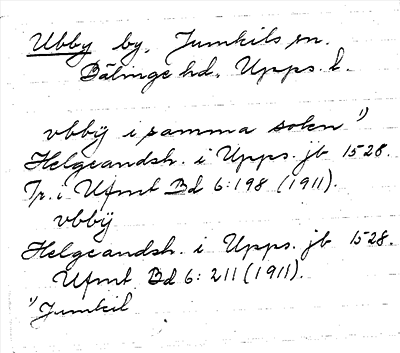 Ubby by, Jumkils sn.
Bälinge hd. Upps. l.
vbbÿ i samma sokn 1)
Helgeandsh. i Upps. jb 1528.
Tr. i Ufmt Bd 6:198 (1911).
vbbÿ
Helgeandsh. i Upps. jb 1528.
Ufmt Bd 6: 211 (1911).
1) Jumkil